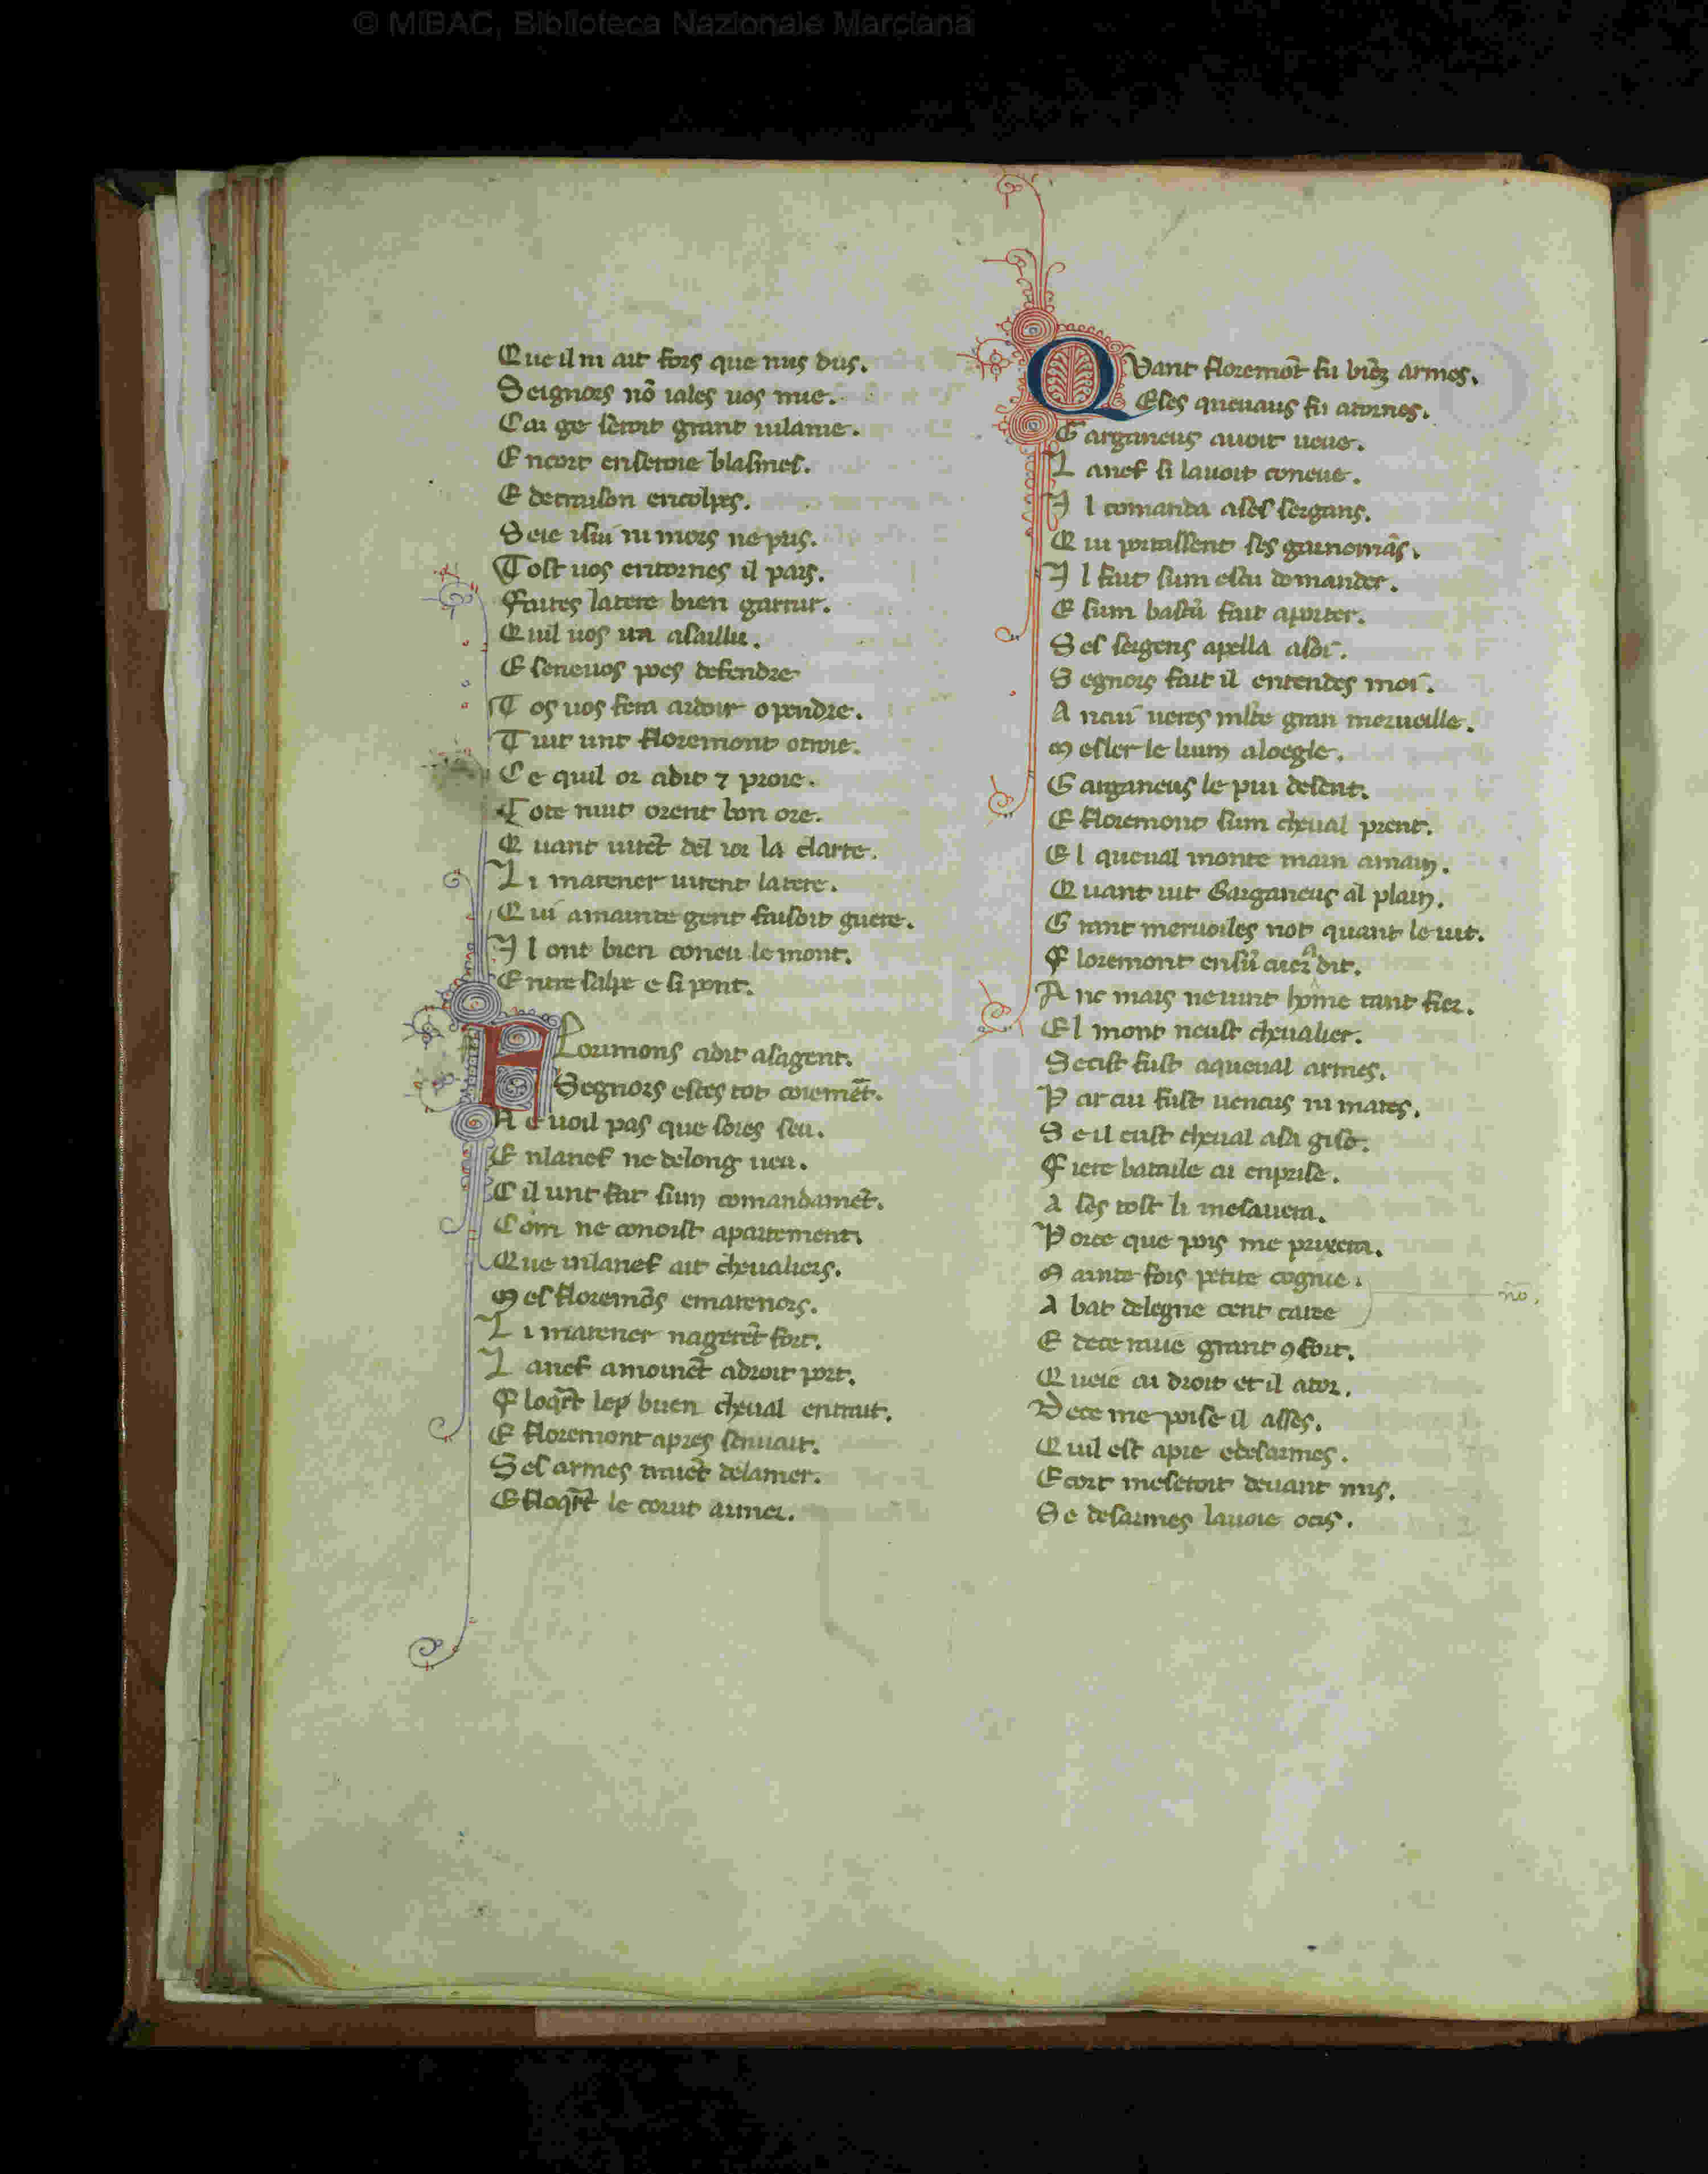 © MiBAC, Biblioteca Nazionale Marciana
Que il ni ait fors que nus dus.
Seignors nō iales uos mie.
Car ge seroit grant uilanie.
Encort enseroie blasmes.
E detraison encolpes.
Seie isui ni mors ne pris.
Tost uos entornes il pais.
Faites latere bien garnir.
Quil uos un asaillir.
E seneuos poes defendre
Tos uos fera ardoir o pendre.
Tuit unt floremont otroie.
Ce quil or adit ⁊ proie.
Tote nuit orent bon ore.
Quant uirēt del ior la clarte.
Li marener uirent latere.
Qui amainte gent faisoit guere.
Il ont bien coneu le mont.
Entre salpe e si pont.
Florimons adit asagent.
Segnors estes tot coiemēt.
Ne uoil pas que sores seu.
Enlanef ne delong ueu.
Cil unt fait sum comandamēt.
Com ne conoist apartement.
Que nilanef ait cheualiers.
Mes floremōs emareners.
Li marener nagerēt fort.
Lanef amoinēt adroit port.
buen cheual entrait.
E floremont apres senuait.
Ses armes traiēt delamer.
le corut armer.
QVant floremōt fu armes.
Eses queuaus fu atornes.
Garganeus auoit ueue.
Lanef si lauoit coneue.
Il comanda ases sergans.
Qui portassent ses garnomās.
Il fait sum escu domander.
E sum bastū fait aporter.
Ses sergens apella
Segnors fait il entendes moi.
Ancui ueres mlte gran merueille.
Mesler le lium aloegle.
Garganeus le pui desent.
E floremont sum cheual prent.
El queual monte main amain.
Quant uit Garganeus al plain.
Grant meruoiles not quant le uit.
Floremont ensū dit.
Anc mais neuint home tant fier.
El mont neust cheualier.
Secist fust aqueual armes.
Par cui fust uencus ni mates.
Se il eust cheual asa gise.
Fiere bataile ai enprise.
Ases tost li mesauera.
Porce que pois me prixera.
Mainte fois petite cognie.
Abat delegne cent caree
nō.
E dece raue grant ꝯfort.
Queie ai droit et il ator.
Dece me poise il asses.
Quil est apie edesarmes.
Ecort meseroit deuant mis.
Se desarmes lauoie ocis.